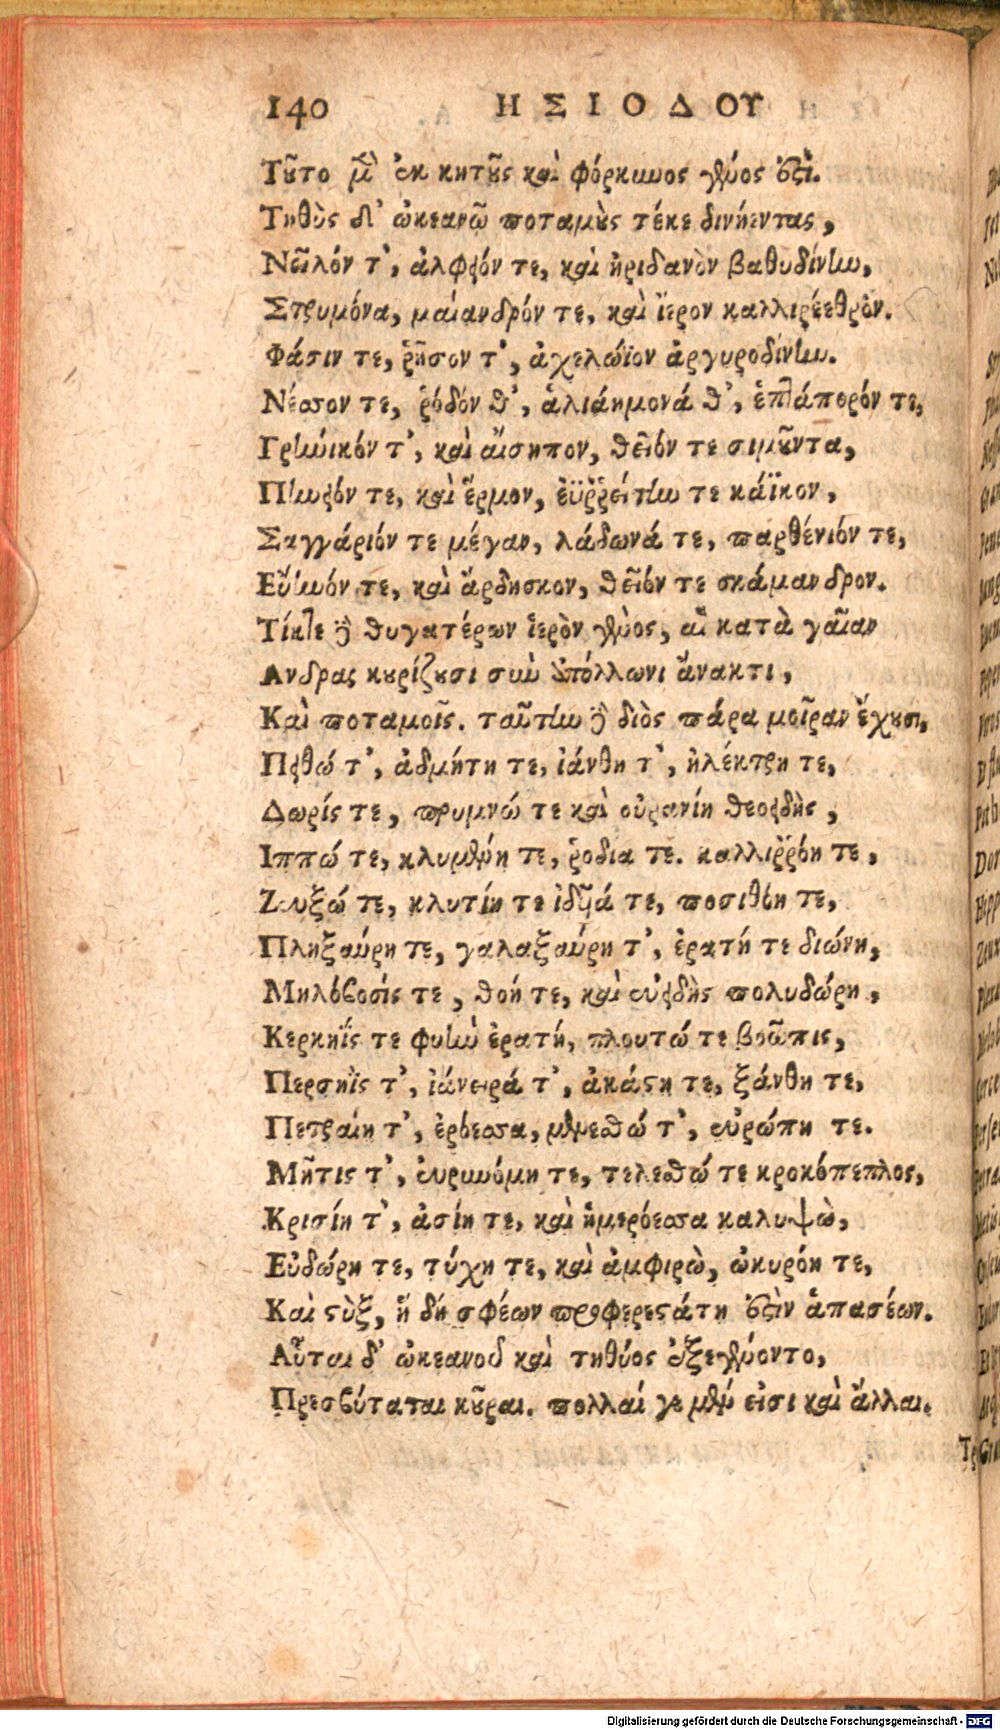 140 ΗΣΙΟΔΟΥ
Τοῦτο μὲν ἐκ κητοῦς καὶ φόρκυνος γένος ἐστί.
Τηθὺς δ' ὠκεανῷ ποταμοὺς τέκε δινήεντας,
Νεῖλόν τ', ἀλφειόν τε, καὶ ἠριδανὸν βαθυδίνην,
Στρυμόνα, μαίανδρόν τε, καὶ ἴςρον καλλιρέεθρον.
Φάσιν τε, ῥῆσον τ', ἀχελώϊον ἀργυροδίνην.
Νέσσον τε, ῥόδόν θ', ἁλιάκμονά θ', ἑπτάπορόν τε,
Γρήνικόν τ', καὶ αἴσηπον, θεῖόν τε σιμοῦντα,
Πηνειόν τε, καὶ ἕρμον, ἐϋῤῥείτην τε κάϊκον,
Σαγγάριόν τε μέγαν, λάδωνά τε, παρθένιόν τε,
Εὔηνόν τε, καὶ ἄρδησκον, θεῖόν τε σκάμανδρον.
Τίκτε δὲ θυγατέρων ἱερὸν γένος, αἳ κατὰ γαῖαν
Ανδρας κουρίζουσι σὺν ἀπόλλωνι ἄνακτι,
Καὶ ποταμοῖς. ταύτην δὲ διὸς πάρα μοῖραν ἔχουσι,
Πειθώ τ', ἀδμήτη τε, ἰάνθη τ', ἠλέκτρη τε,
Δωρίς τε, πρυμνώ τε καὶ οὐρανίη θεοειδὴς,
Ιππώ τε, κλυμένη τε, ῥοδια τε. καλλιῤῥόη τε,
Ζευξώ τε, κλυτίη τε ἰδῦά τε, πασιθόη τε,
Πληξαύρη τε, γαλαξαύρη τ', ἐρατή τε διώνη,
Μηλόβοσίς τε, θοή τε, καὶ εὐειδὴς πολυδώρη,
Κερκηΐς τε φυὴν ἐρατή, πλουτώ τε βοῶπις,
Περσηΐς τ', ἰάνειρά τ', ἀκάςη τε, ξάνθη τε,
Πετραίη τ', ἐρόεσσα, μενεσθώ τ', εὐρώπη τε.
Μῆτις τ', εὐρυνόμη τε, τελεσθώ τε κροκόπεπλος,
Κρισίη τ', ἀσίη τε, καὶ ἱμερόεσσα καλυψὼ,
Εὐδώρη τε, τύχη τε, καὶ ἀμφιρὼ, ὠκυρόη τε,
Καὶ ςὺξ, ἣ δή σφέων προφερεςάτη ἐστὶν ἁπασέων.
Αὗται δ' ὠκεανοῦ καὶ τηθύος ἐξεγένοντο,
Πρεσβύταται κοῦραι. πολλαί γε μέν εἰσι καὶ ἄλλαι.
Τρ
Digitalisierung gefördert durch die Deutsche Forschungsgemeinschaft - DFG